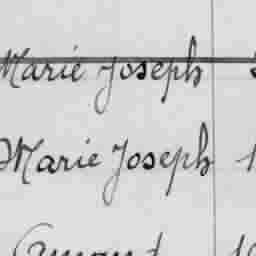 Marie Joseph
Marie Joseph
Armant